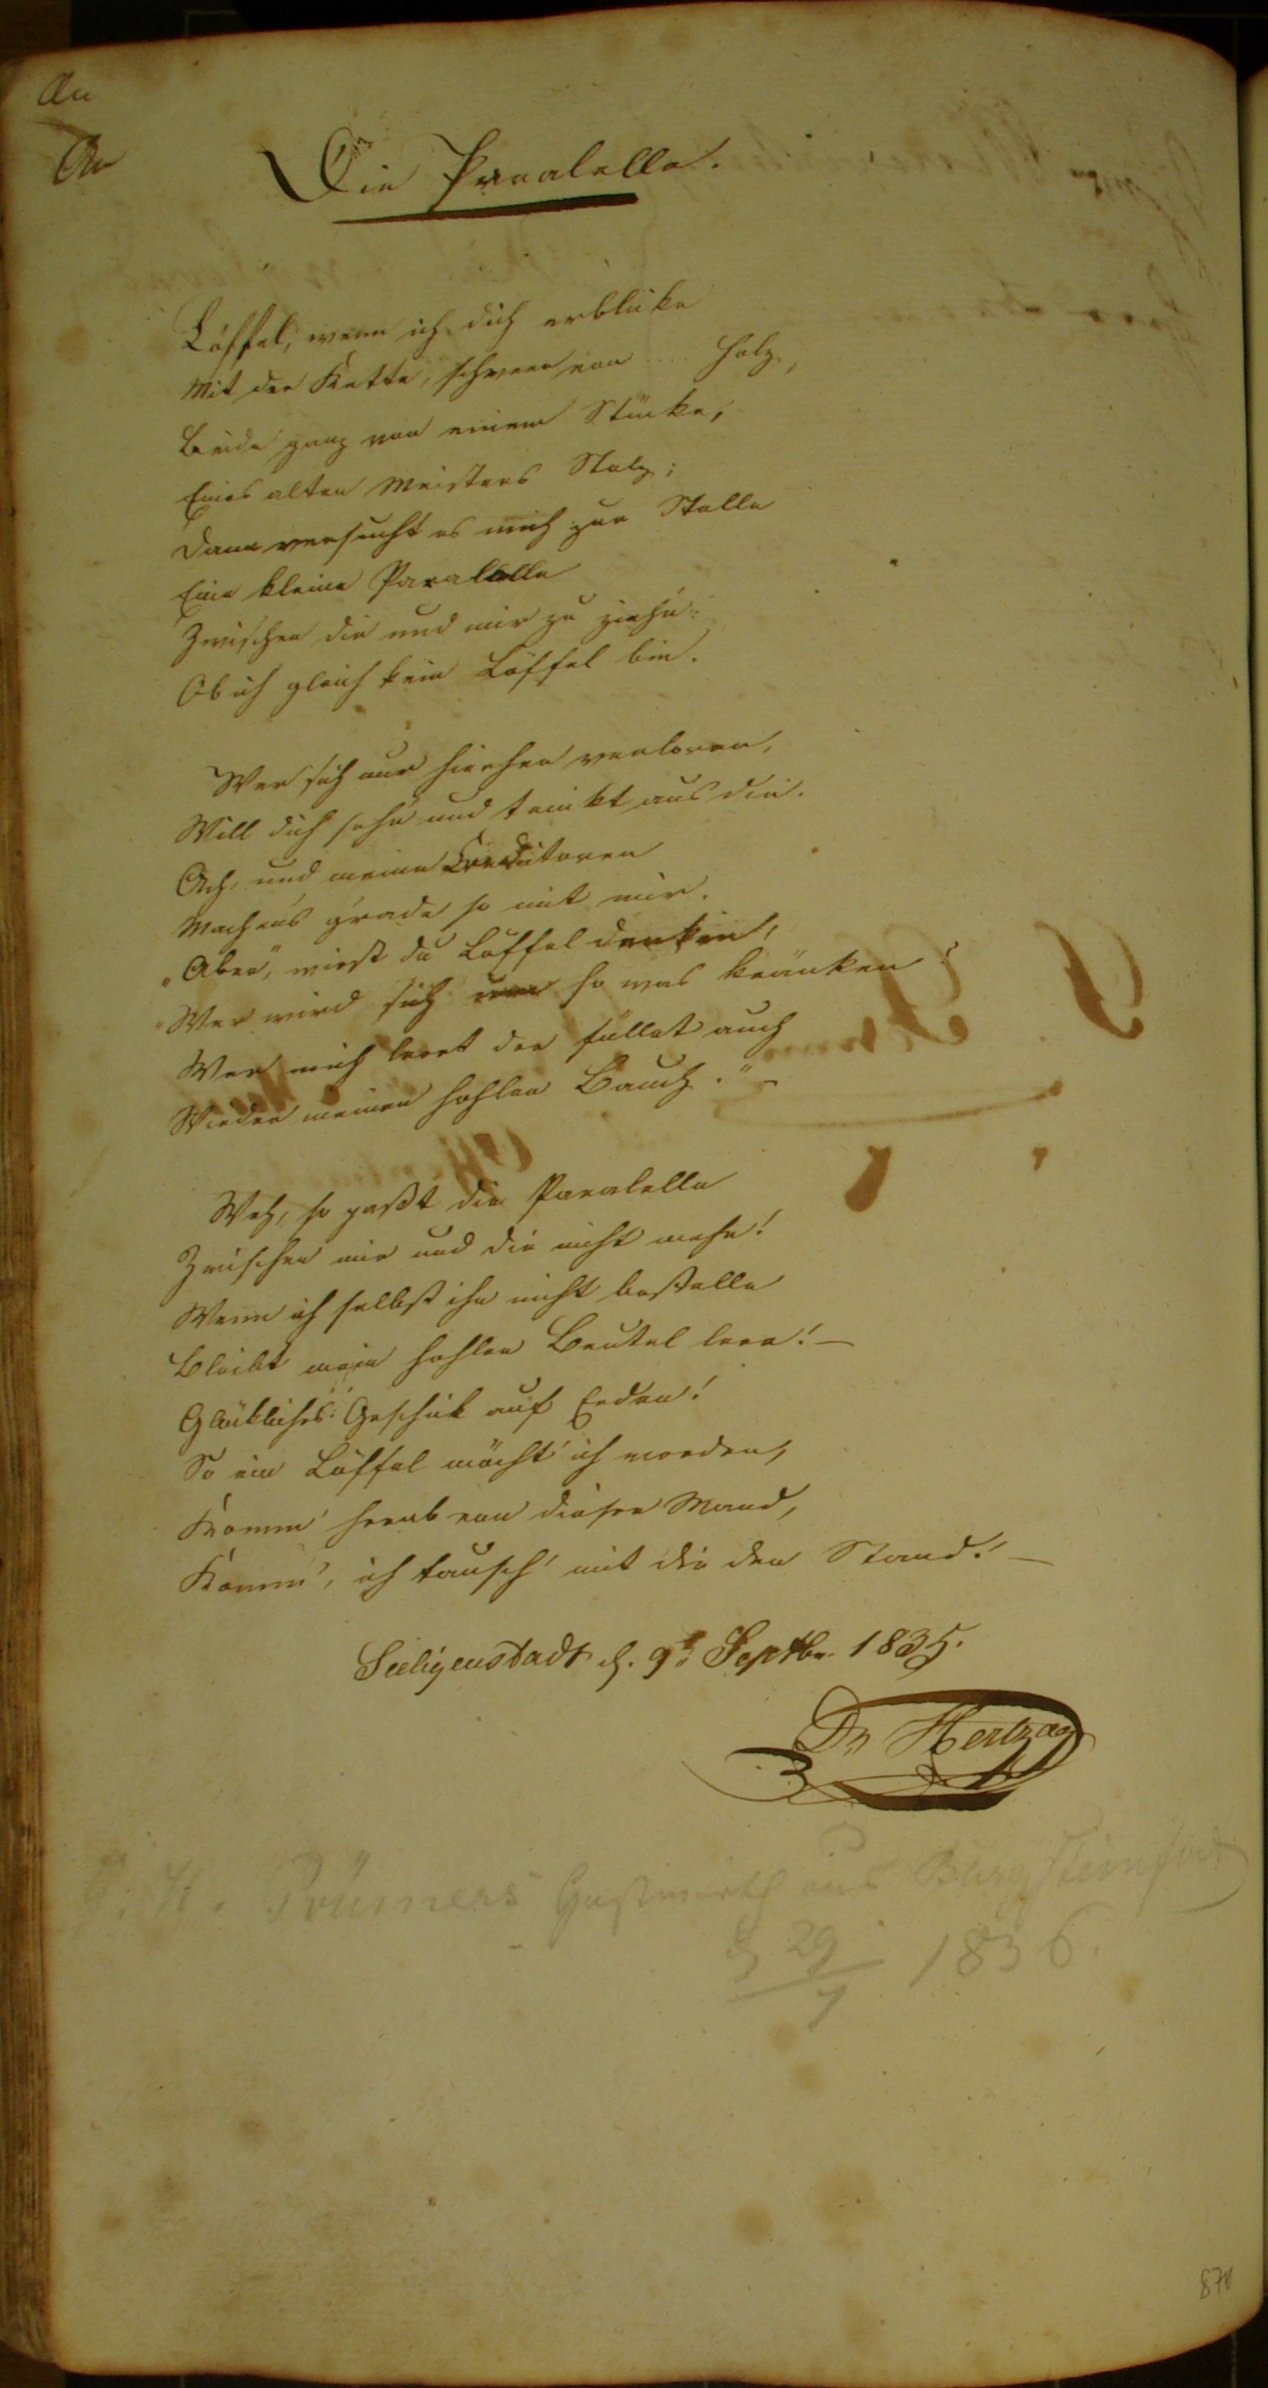 An
An
Die Paralelle.
Löffel, wenn ich dich erblicke
Mit der Kette, schwer von Holz,
Beide ganz von einem Stücke,
Eines alten Meisters Stolz;
Dann versucht es mich zur Stelle
Eine kleine Paralelle
Zwischen dir und mir zu ziehn:
Ob ich gleich kein Löffel bin.
Wer sich nur hierher verloren,
Will dich sehn und trinkt aus dir.
Ach, und meine Creditoren
Machens grade so mit mir.
"Aber", wirst du Löffel denken,
"Wer wird sich um so was kränken?
Wer mich leert der füllet auch
Wieder meinen hohlen Bauch." –
Weh, so paßt die Paralelle
Zwischen mir und dir nicht mehr!
Wenn ich selbst ihn nicht bestelle
Bleibt mein hohler Beutel leer! –
Glückliches Geschick auf Erden!
So ein Löffel möcht' ich werden,
Komm' herab von dieser Wand,
Komm', ich tausch' mit dir den Stand! –
Seeligenstadt d. 9t Septbr. 1835.
Dr Hertzog
Prümers Gastwirth aus Burgsteinfort
d 29/7 1836.
87v